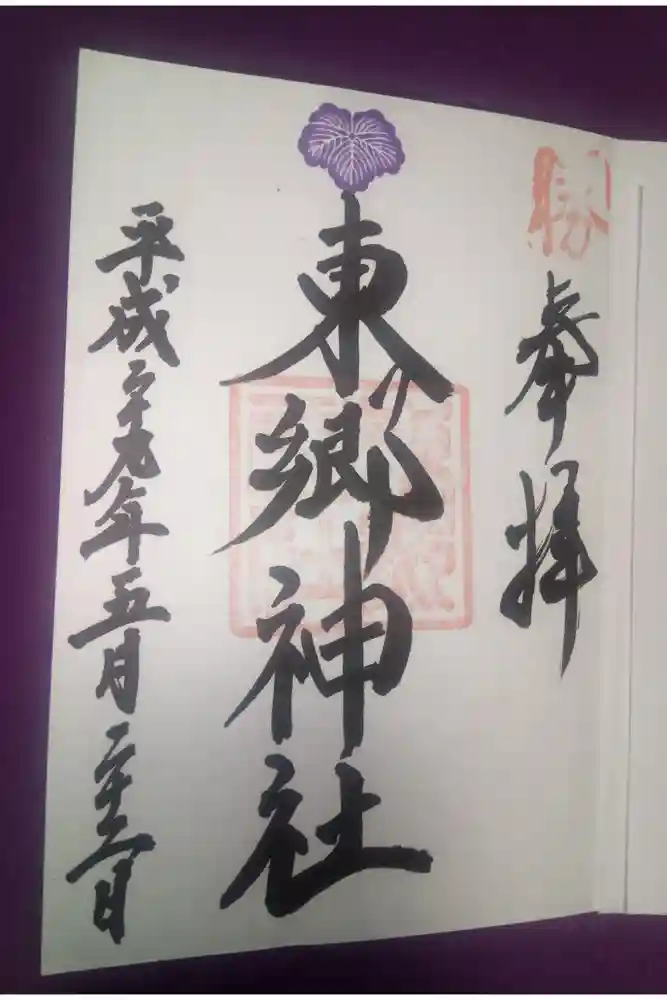 勝
奉拝
東郷神社
平成二十九年五月二十二日